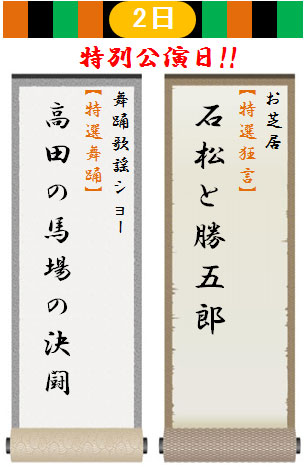 2日
特別公演日!!
お芝居
【特選狂言】
石松と勝五郎
舞踊歌謡ショー
【特選舞踊】
高田の馬場の決闘